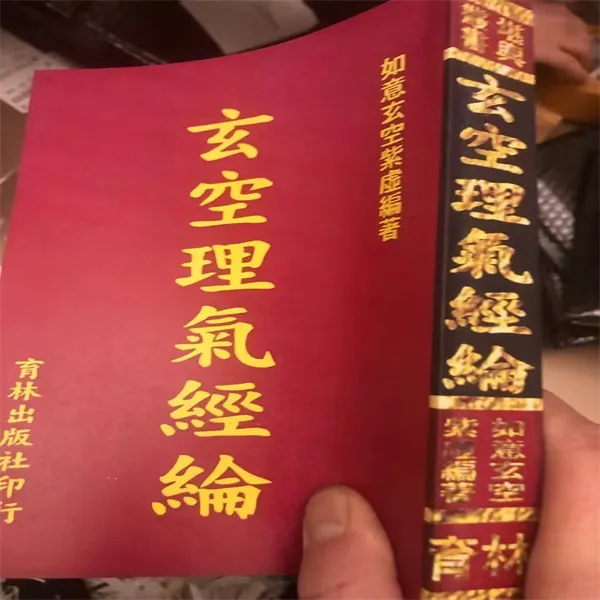 如意玄空紫虛編著
玄空理氣經綸
育林出版社印行
堪輿
叢書
玄空理氣經綸
如意玄空
紫虛編著
育林